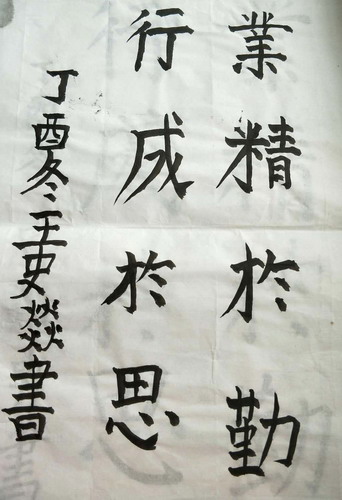 業精於勤
行成於思
丁酉冬王史燚書